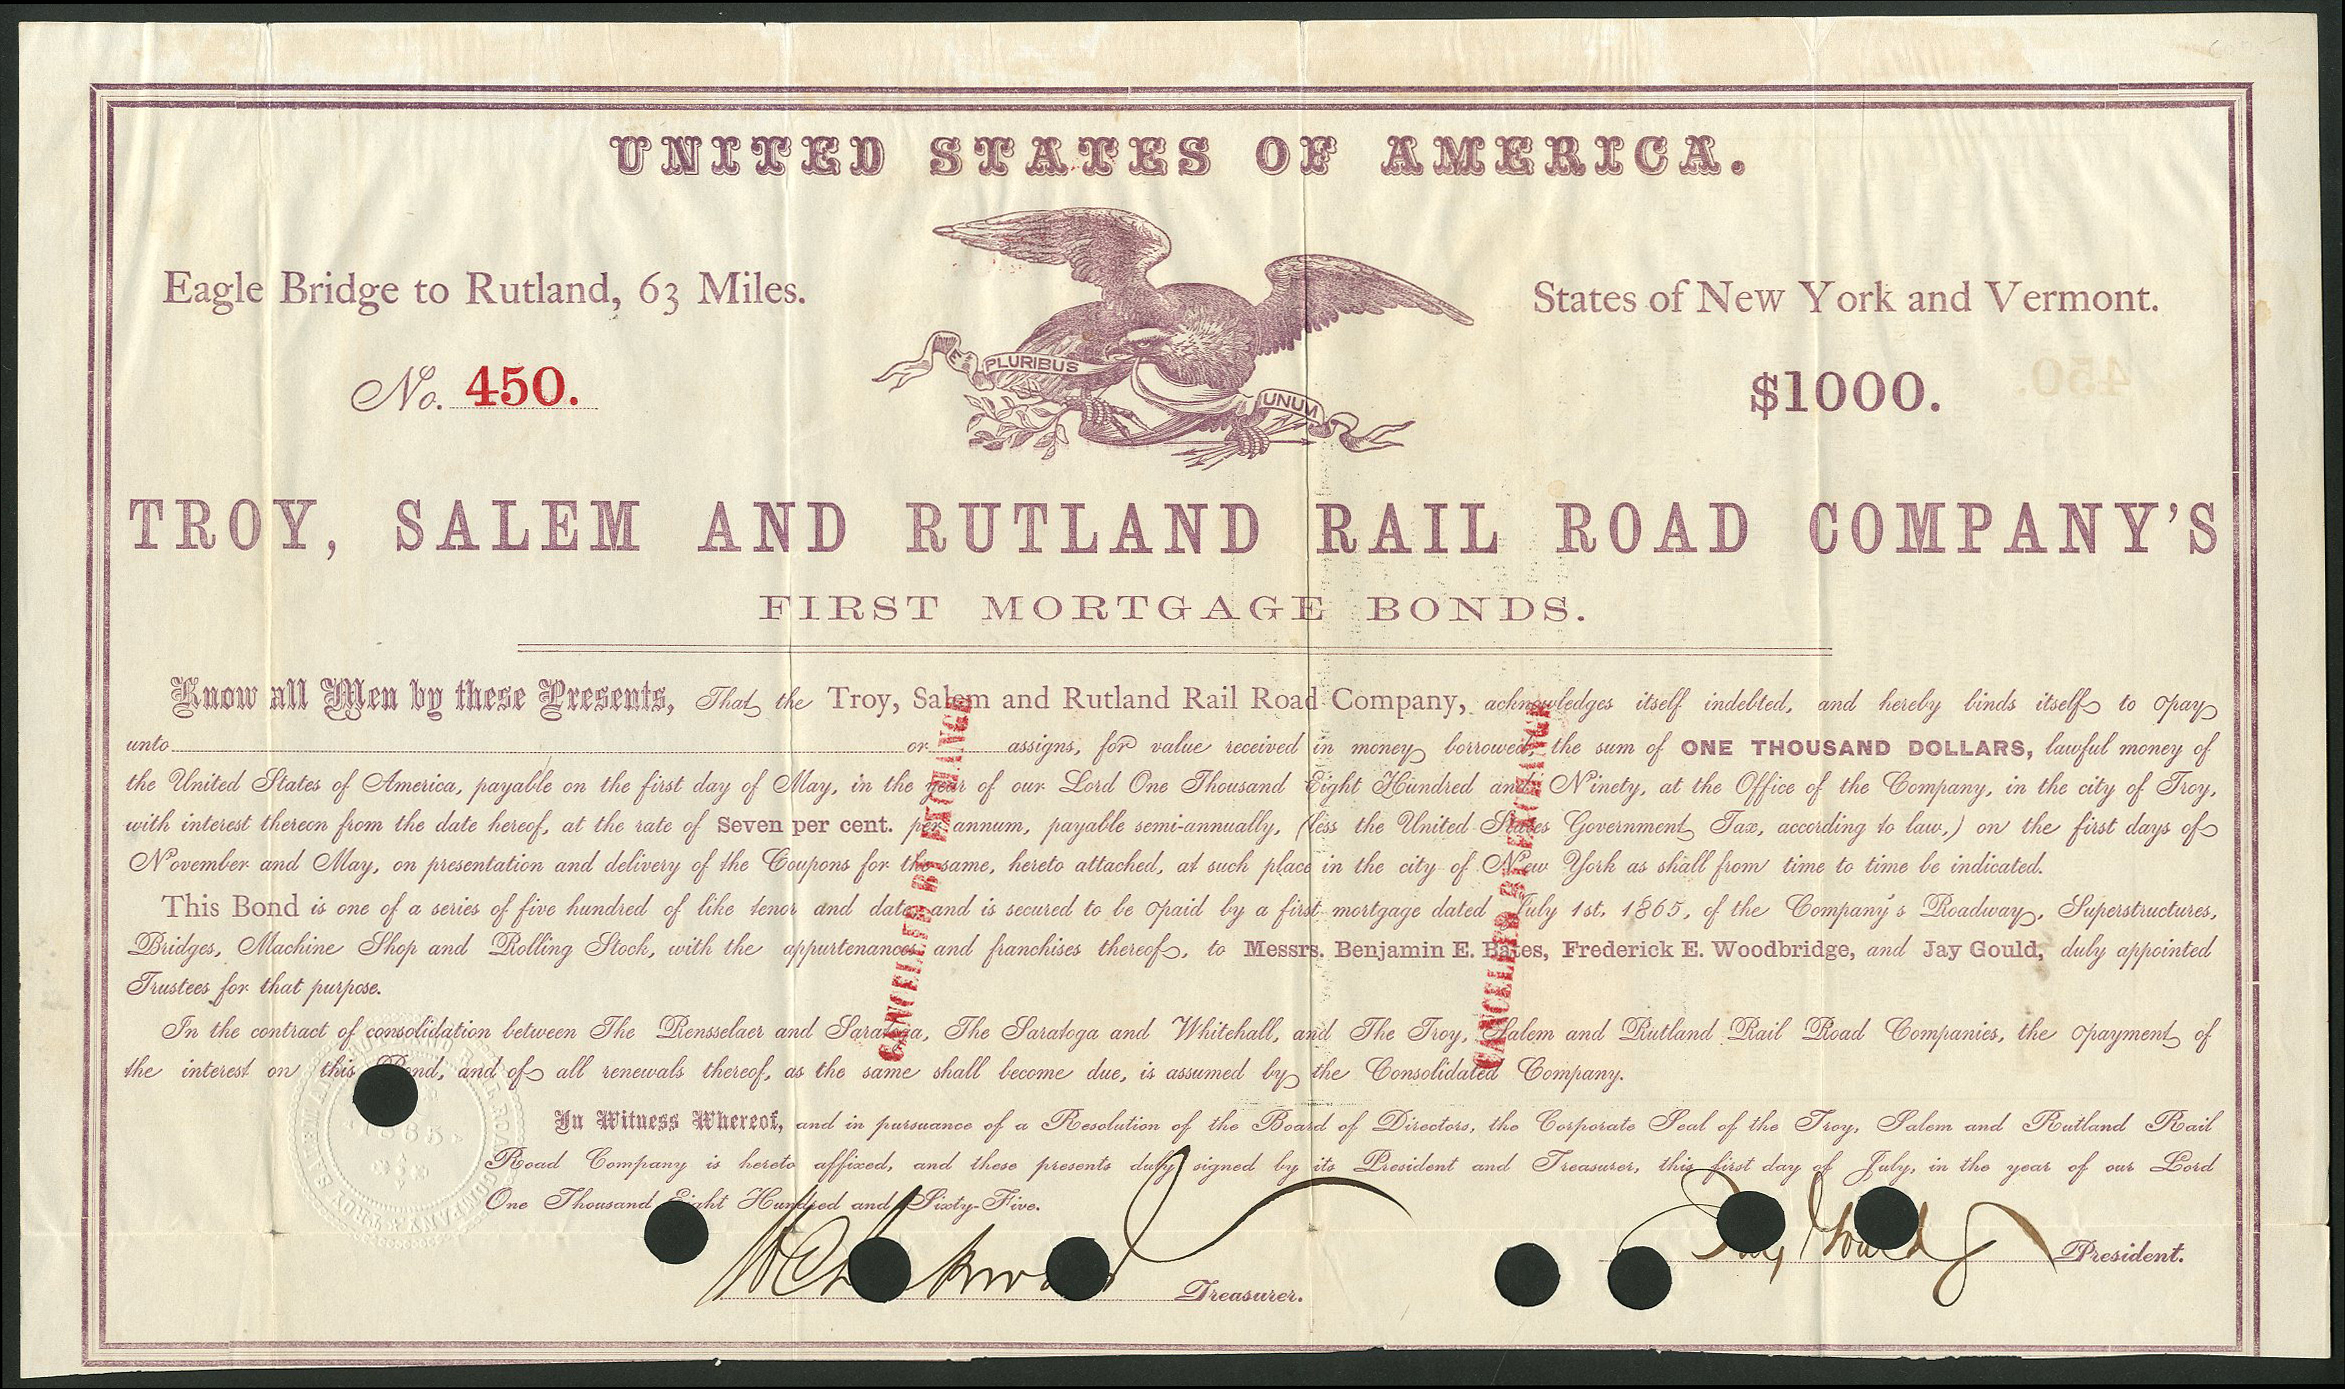 UNITED STATES OF AMERICA.
Eagle Bridge to Rutland, 63 Miles.
States of New York and Vermont.
E PLURIBUS UNUM
No. 450.
$1000.
TROY, SALEM AND RUTLAND RAIL ROAD COMPANY'S
FIRST MORTGAGE BONDS.
Know all Men by these Presents, That the Troy, Salem and Rutland Rail Road Company, acknowledges itself indebted, and hereby binds itself to pay
unto or assigns, for value received in money borrowed, the sum of ONE THOUSAND DOLLARS, lawful money of
the United States of America, payable on the first day of May, in the year of our Lord One Thousand Eight Hundred and Ninety, at the Office of the Company, in the city of Troy,
with interest thereon from the date hereof, at the rate of Seven per cent. per annum, payable semi-annually, (less the United States Government Tax, according to law,) on the first days of
November and May, on presentation and delivery of the Coupons for the same, hereto attached, at such place in the city of New York as shall from time to time be indicated.
This Bond is one of a series of five hundred of like tenor and date and is secured to be paid by a first mortgage dated July 1st, 1865, of the Company's Roadway, Superstructures,
Bridges, Machine Shop and Rolling Stock, with the appurtenances and franchises thereof, to Messrs. Benjamin E. Bates, Frederick E. Woodbridge, and Jay Gould, duly appointed
Trustees for that purpose.
In the contract of consolidation between The Rensselaer and Saratoga, The Saratoga and Whitehall, and The Troy, Salem and Rutland Rail Road Companies, the payment of
the interest on this Bond, and of all renewals thereof, as the same shall become due, is assumed by the Consolidated Company.
In Witness Whereof, and in pursuance of a Resolution of the Board of Directors, the Corporate Seal of the Troy, Salem and Rutland Rail
Road Company is hereto affixed, and these presents duly signed by its President and Treasurer, this first day of July, in the year of our Lord
One Thousand Eight Hundred and Sixty-Five.
CANCELLED BY EXCHANGE
CANCELLED BY EXCHANGE
1865
Jay Gould President.
Treasurer.